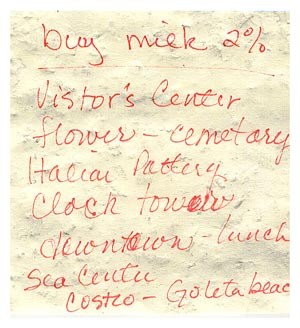 buy milk 2%
Vistor's Center
flower - cemetary
Italian Pottery
Clock tower
downtown - lunch
Sea Center
Costco - Goleta beac